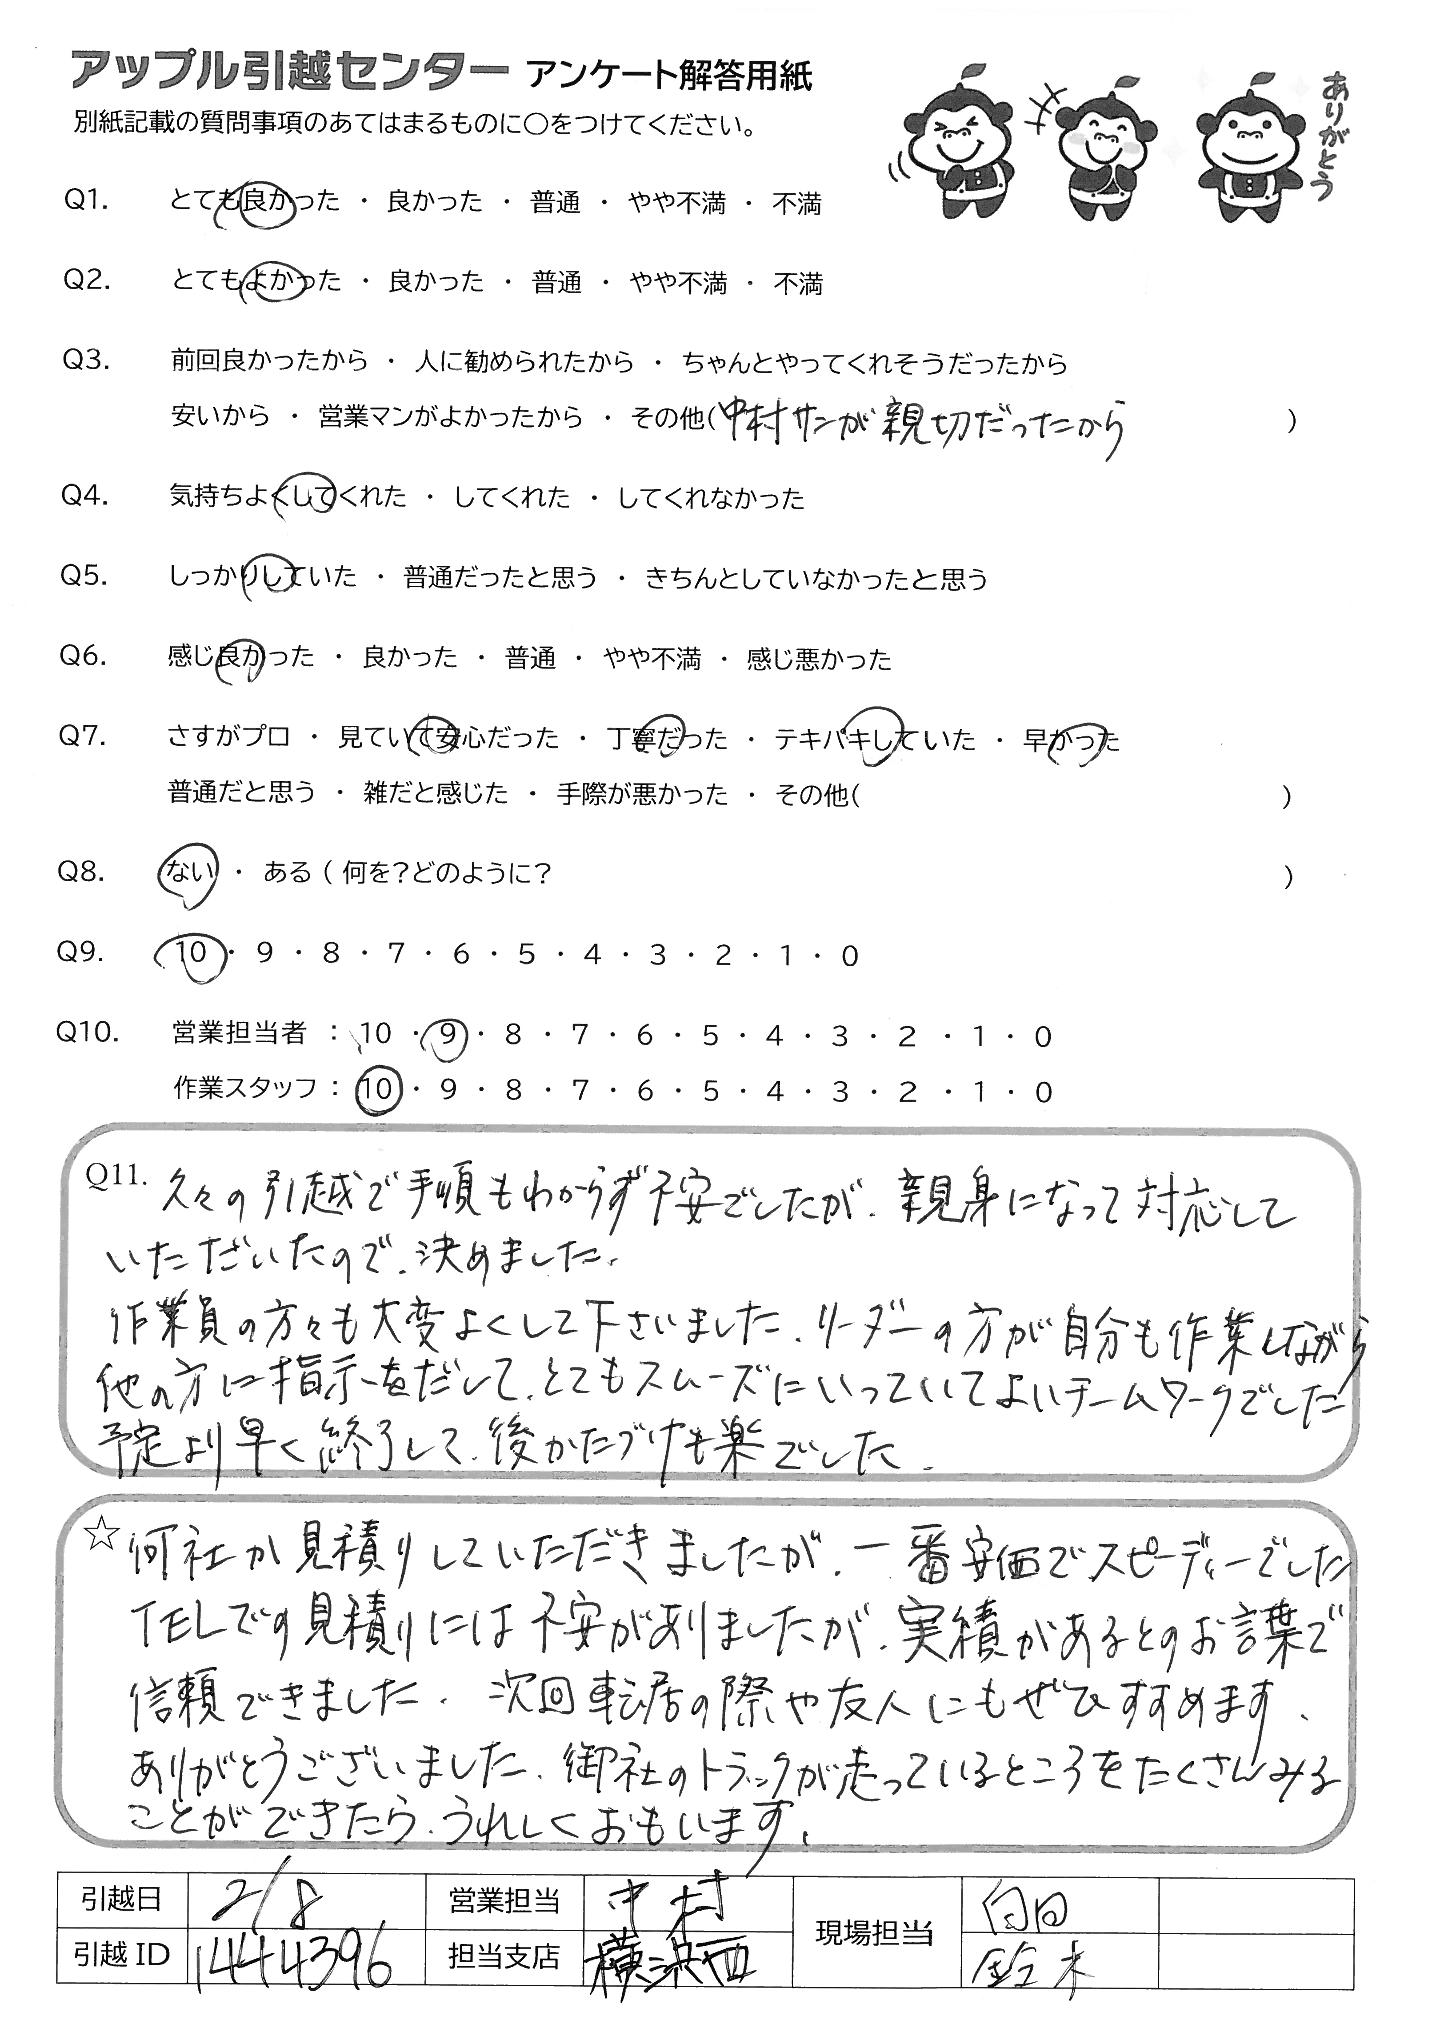 アップル引越センター アンケート解答用紙
別紙記載の質問事項のあてはまるものに○をつけてください。
ありがとう
Q1. とても良かった ・ 良かった ・ 普通 ・ やや不満 ・ 不満
Q2. とてもよかった ・ 良かった ・ 普通 ・ やや不満 ・ 不満
Q3. 前回良かったから ・ 人に勧められたから ・ ちゃんとやってくれそうだったから
安いから ・ 営業マンがよかったから ・ その他(中村サンが親切だったから )
Q4. 気持ちよくしてくれた ・ してくれた ・ してくれなかった
Q5. しっかりしていた ・ 普通だったと思う ・ きちんとしていなかったと思う
Q6. 感じ良かった ・ 良かった ・ 普通 ・ やや不満 ・ 感じ悪かった
Q7. さすがプロ ・ 見ていて安心だった ・ 丁寧だった ・ テキパキしていた ・ 早かった
普通だと思う ・ 雑だと感じた ・ 手際が悪かった ・ その他( )
Q8. ない ・ ある ( 何を?どのように? )
Q9. 10 ・ 9 ・ 8 ・ 7 ・ 6 ・ 5 ・ 4 ・ 3 ・ 2 ・ 1 ・ 0
Q10. 営業担当者 : 10 ・ 9 ・ 8 ・ 7 ・ 6 ・ 5 ・ 4 ・ 3 ・ 2 ・ 1 ・ 0
作業スタッフ : 10 ・ 9 ・ 8 ・ 7 ・ 6 ・ 5 ・ 4 ・ 3 ・ 2 ・ 1 ・ 0
Q11. 久々の引越で手順もわからず不安でしたが、親身になって対応して
いただいたので、決めました。
作業員の方々も大変よくして下さいました。リーダーの方が自分も作業しながら
他の方に指示をだして、とてもスムーズにいっていてよいチームワークでした
予定より早く終了して、後かたづけも楽でした。
☆何社か見積りしていただきましたが、一番安価でスピーディーでした
TELでの見積りには不安がありましたが、実績があるとのお言葉で
信頼できました。次回転居の際や友人にもぜひすすめます、
ありがとうございました。御社のトラックが走っているところをたくさんみる
ことができたら、うれしくおもいます。
引越日 2/8 営業担当 中村 現場担当 向田
引越ID 1444396 担当支店 横浜西 鈴木